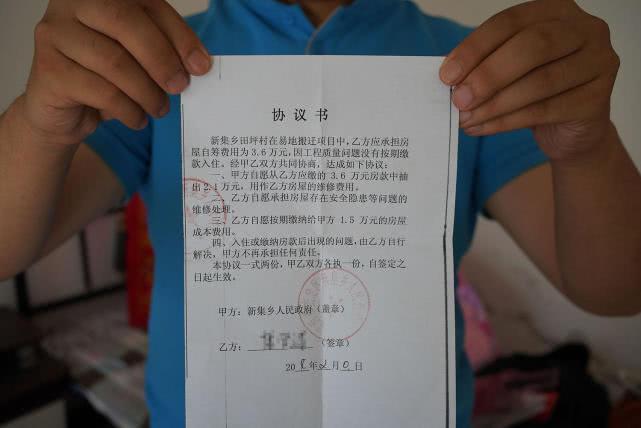 协议书
新集乡田坪村在易地搬迁项目中,乙方应承担房
屋自筹费用为3.6万元,因工程质量问题没有按期缴
款入住。经甲乙双方共同协商,达成如下协议:
一、甲方自愿从乙方应缴的3.6万元房款中抽
出2.1万元,用作乙方房屋的维修费用。
二、乙方自愿承担房屋存在安全隐患等问题的
维修处理。
三、乙方自愿按期缴纳给甲方1.5万元的房屋
成本费用。
四、入住或缴纳房款后出现的问题,由乙方自行
解决,甲方不再承担任何责任。
本协议一式两份,甲乙双方各执一份,自签定之
日起生效。
甲方:新集乡人民政府(盖章)
乙方:(签章)
年 月 日